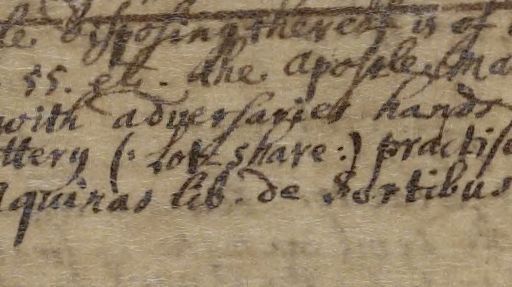 disposing thereof is of
55. etc. The Apostle
with adversaries hands
ttery (: lot share :) practis
Aquinas lib. de Sortibus